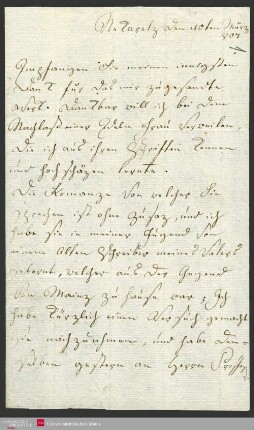 den 10ten März
807
Empfangen Sie meinen innigsten
Dank für das mir zugesandte
Werk. Dankbar will ich bei dem
Nachlaß einer Edeln Frau verweilen,
die ich aus ihren Schriften kennen
und hochschäzen lernte.
Die Romanze von welcher Sie
sprechen ist ohne Zusaz, und ich
habe sie in meiner Jugend von
einem alten Schreiber meines Vaters
gelernt, welcher aus der Gegend
von Mainz zu Hause war; Ich
habe kürzlich einen Versuch gemacht
sie nachzuahmen, und habe den-
selben gestern an Herrn